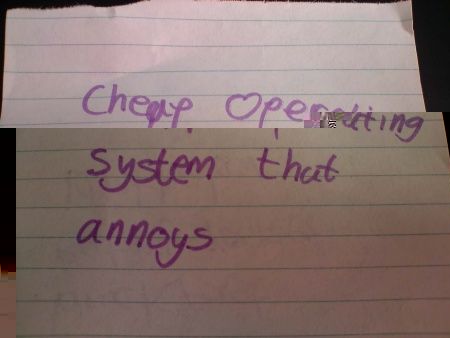 Cheap Operating
system that
annoys